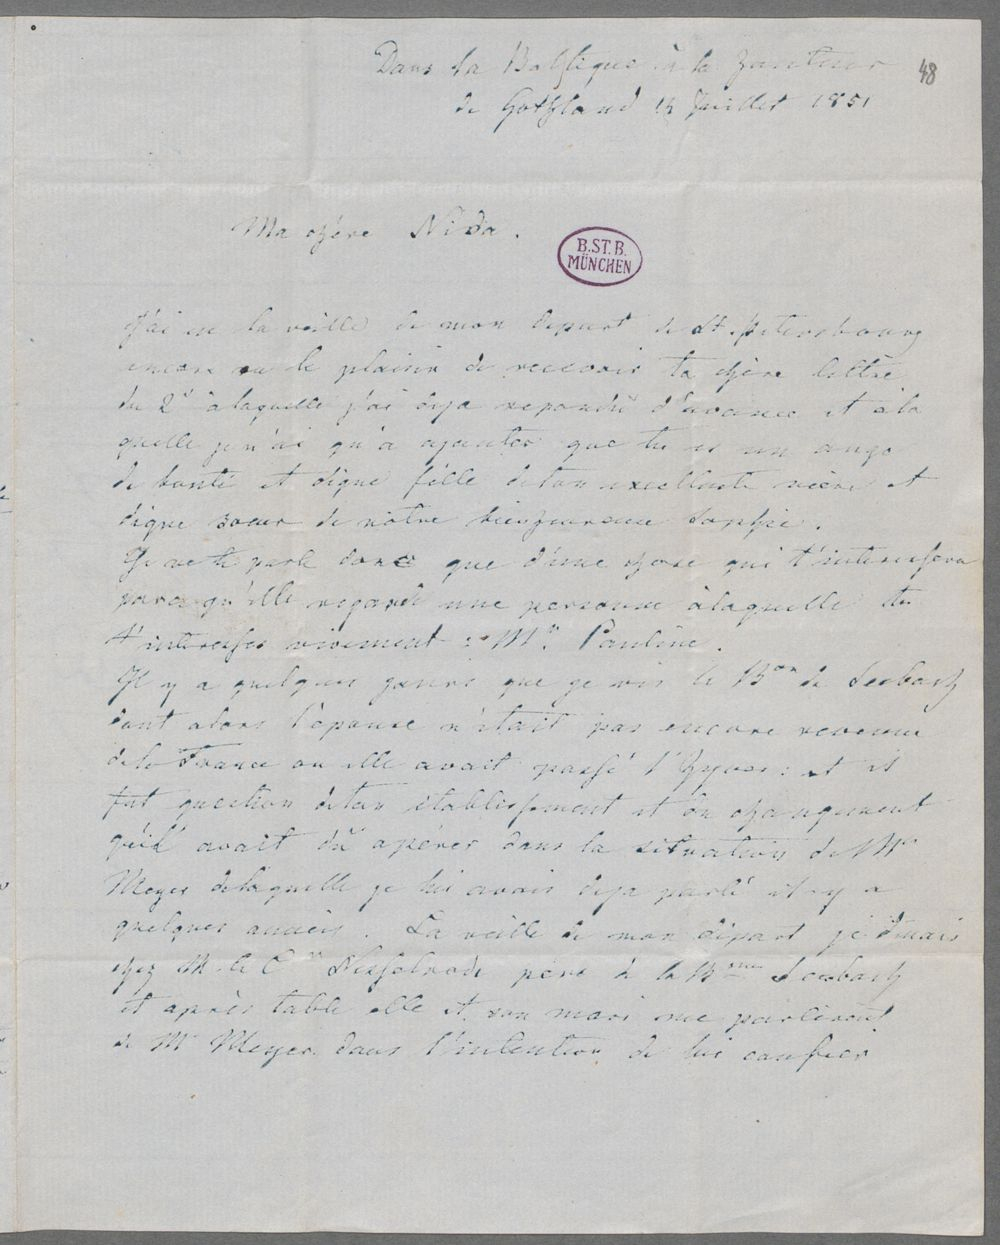 Dans la Baltique à la hauteur
de Gothland 14 Juillet 1851
48
Ma chère Nida.
B.ST.B.
MÜNCHEN
J'ai eu la veille de mon depart de St. Petersbourg
encore eu le plaisir de recevoir ta chère lettre
du 2 à laquelle j'ai deja repondu d'avance et à la
quelle je n'ai qu'à ajouter que tu es un ange
de bonté et digne fille de ton excellente mère et
digne soeur de notre bienheureuse Sophie.
Je ne te parle donc que d'une chose qui t'interessera
parcequ'elle regarde une personne à laquelle tu
t'interesses vivement : Mlle Pauline.
Il y a quelques jours que je vis le Bon de Seebach
dont alors l'épouse n'était pas encore revenue
de la France ou elle avait passé l'hyver: et il
fut question de ton établissement et du changement
qu'il avait dû opérer dans la situation de Mlle
Meyer de laquelle je lui avais deja parlé il y a
quelques années. La veille de mon départ je dinais
chez M. le Cte Nesselrode père de la Bnne Seebach
et après table elle et son mari me parlerent
de Mlle Meyer dans l'intention de lui confier